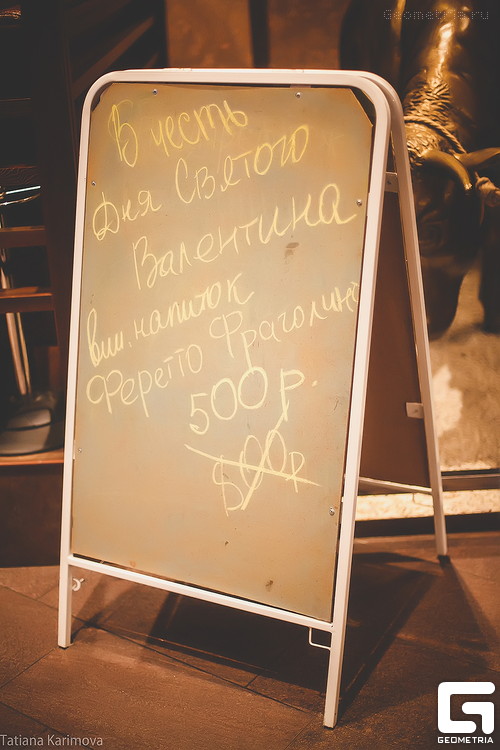 Geometria.ru
В честь
Дня Святого
Валентина
вин. напиток
Феретто Фраголино
500р.
800р
Tatiana Karimova
GEOMETRIA